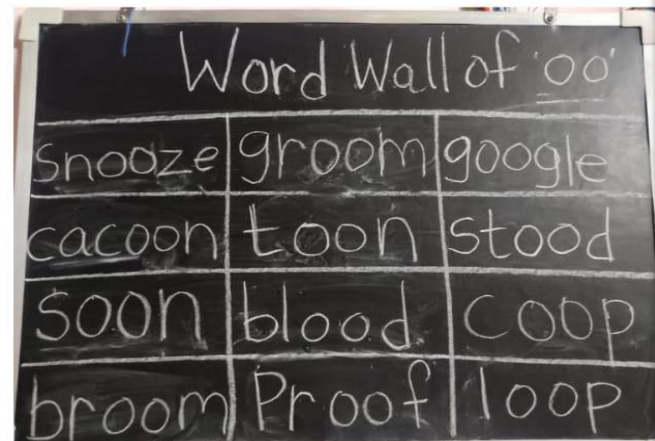 Word Wall of 'oo'
Snooze groom google
cacoon toon stood
soon blood coop
broom Proof loop